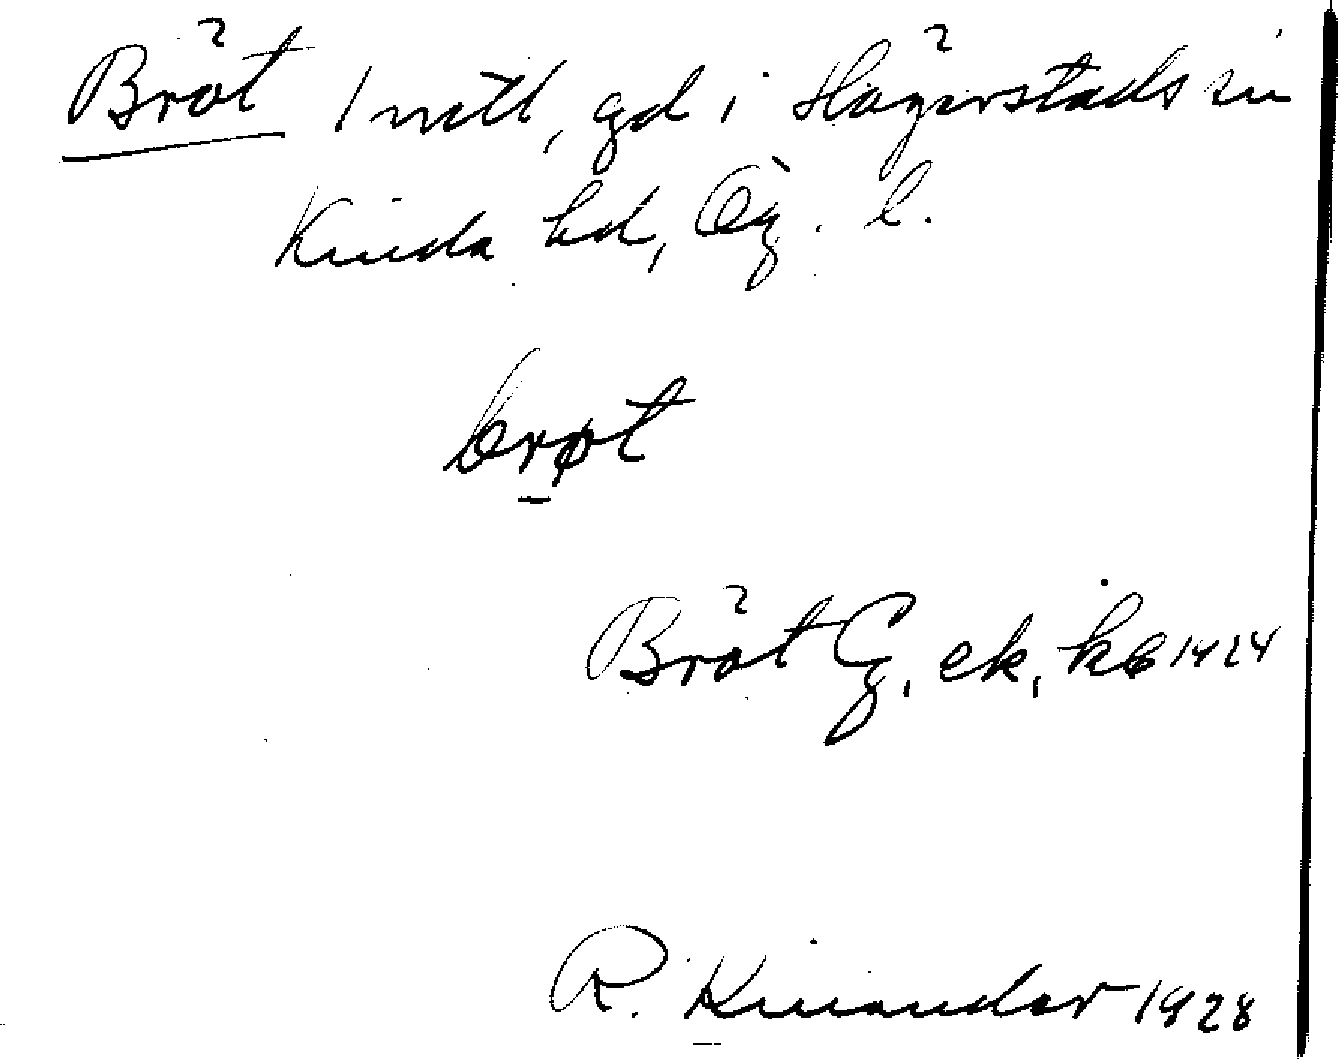 Bröt 1 mtl, gd i Hägerstads sn
Kinda hd, Ög. l.
brøt
Bröt G, ek, kb 1924
R. Kinander 1928